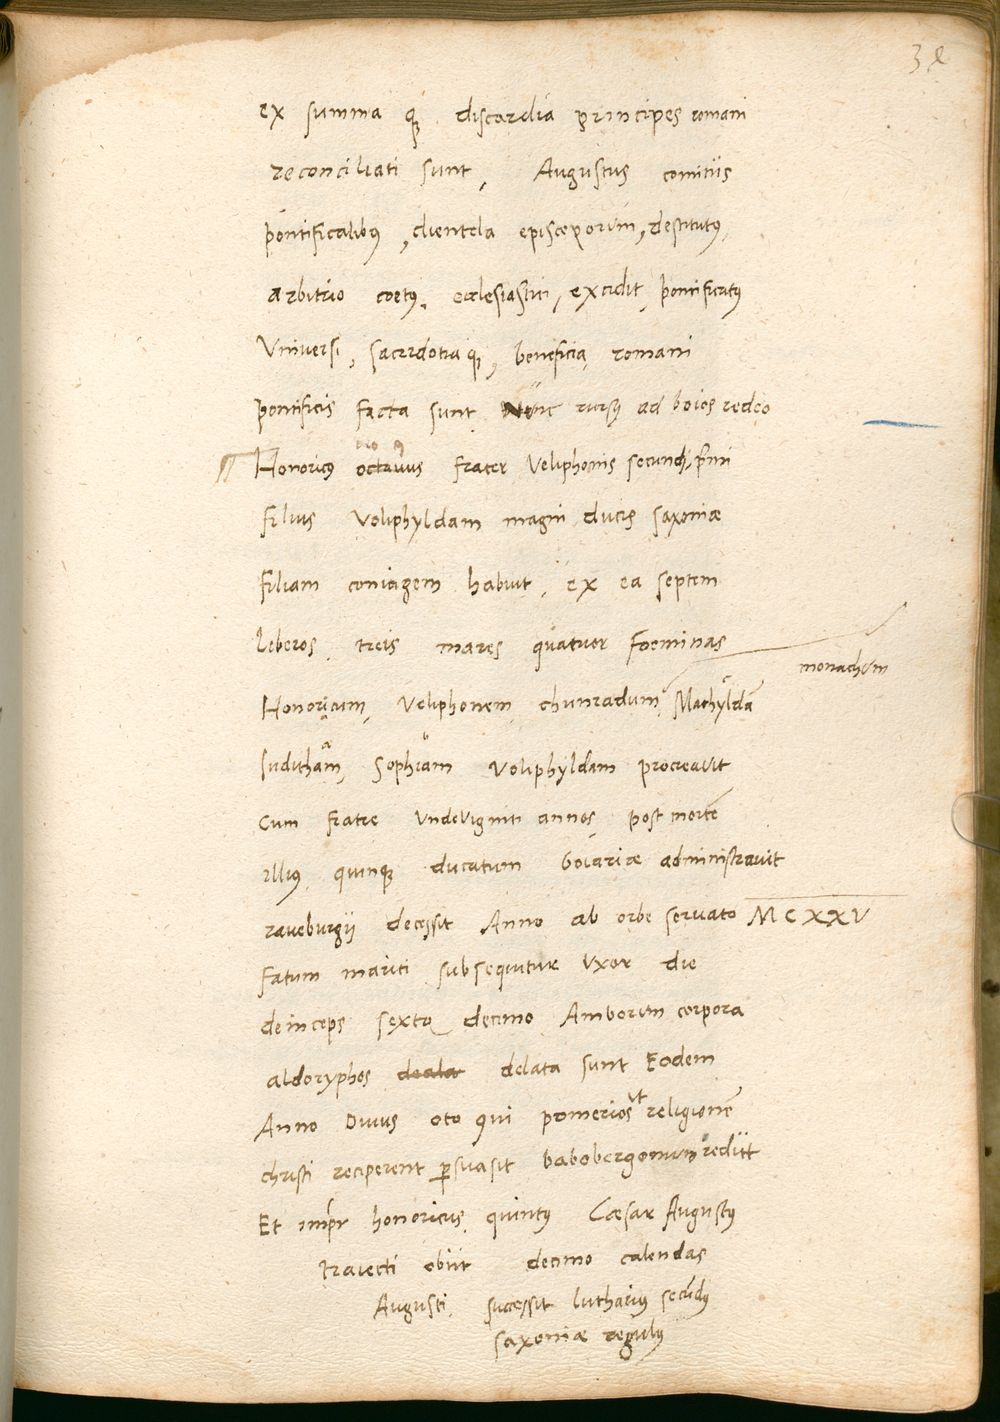 38
ex summa q; discordia principes romani
reconciliati sunt, Augustus comitiis
pontificalibꝰ, clientela episcoporum, destitutꝰ
arbitrio coetꝰ ecclesiastici, excidit pontificatꝰ
Vniversi, sacerdotia q;, beneficia romani
pontificis facta sunt Nunc rursꝰ ad boios redeo
Honoricꝰ octavus frater Veliphonis secundi, primi
filius Voliphyldam magni ducis saxoniæ
filiam coniugem habuit, ex ea septem
leberos treis mares quatuor foeminas
monachum
Honoricum, Veliphonem, chunradum Machyldā
Iuditham, Sophiam Voliphyldam procreavit
Cum fratre Vndeviginti annos, post mortē
illiꝰ quinq; ducatum boiariæ administravit
raveburgii decessit Anno ab orbe servato MCXXV
fatum mariti subsequitur Vxor die
deinceps sexto decimo Amborum corpora
aldoryphos delata sunt Eodem
Anno Divus oto qui pomerios vt religionē
christi reciperent persuasit babobergonum rediit
Et impr honoricus quintꝰ Cæsar Augustꝰ
traiecti obiit decimo calendas
Augusti, successit luthariꝰ secūdꝰ
saxoniæ regulꝰ